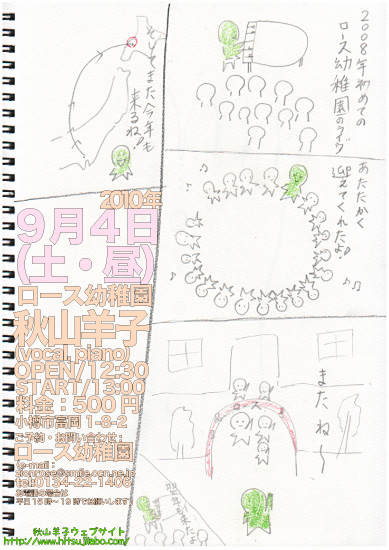 2008年初めての
ロース幼稚園のライヴ
あたたかく
迎えてくれたよ!
またね〜
ロース
翌年も来たよ!
そしてまた今年も
来るね!
2010年
9月4日
(土・昼)
ロース幼稚園
秋山羊子
(vocal, piano)
OPEN/12:30
START/13:00
料金:500円
小樽市富岡 1-8-2
ご予約・お問い合わせ:
ロース幼稚園
e-mail:
zionrose@smile.ocn.ne.jp
tel:0134-22-1406
お電話の場合は
平日15時〜19時でお願いします
秋山羊子ウェブサイト
http://www.hitsujilabo.com/